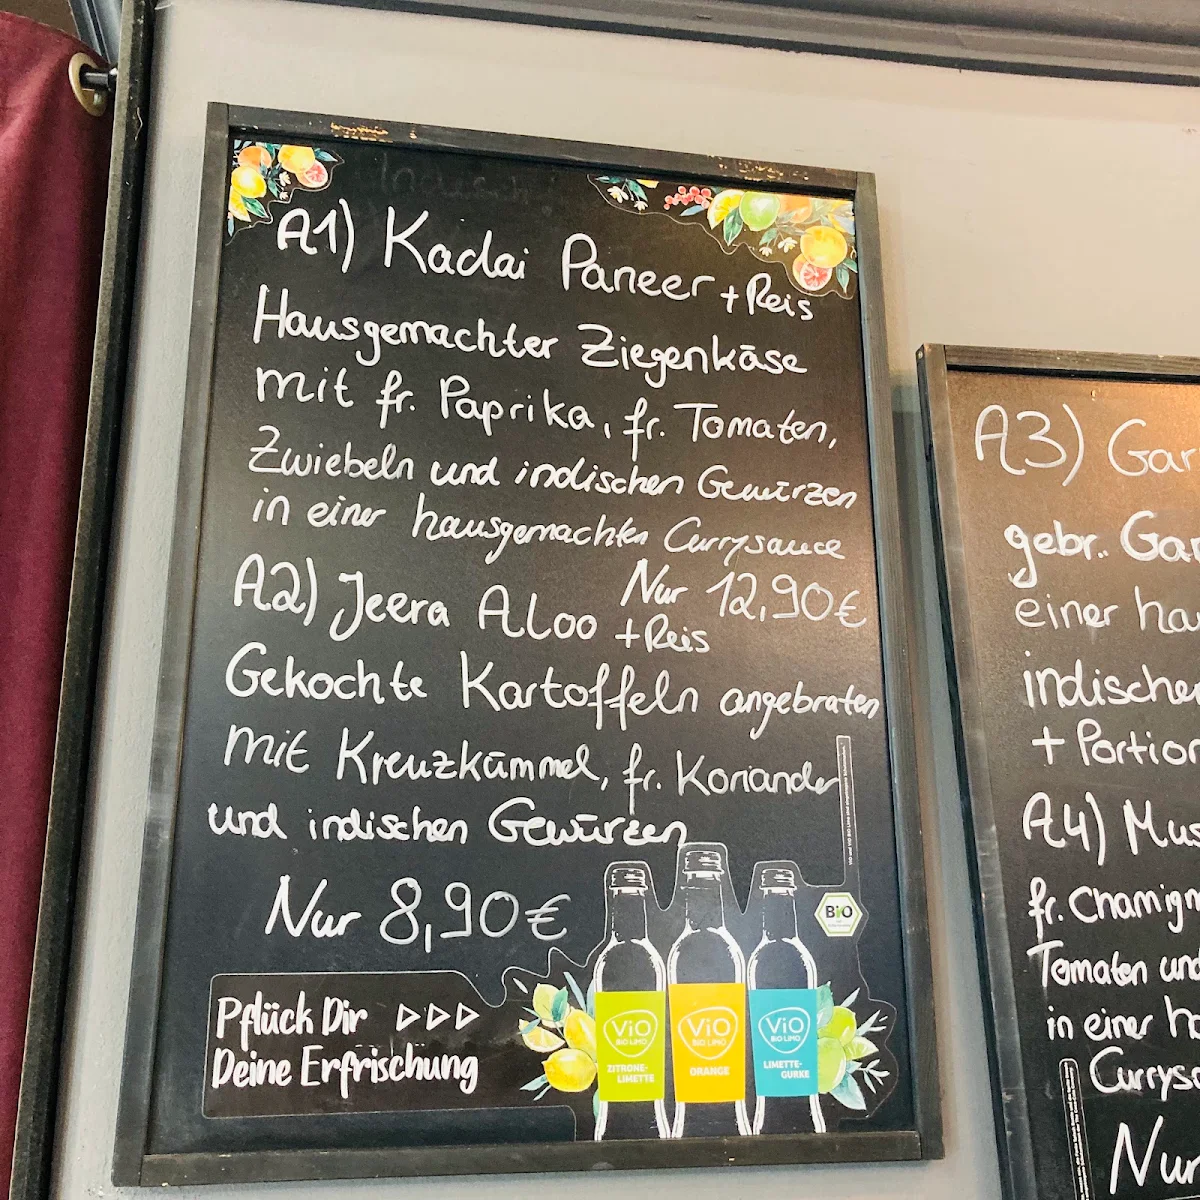 A1) Kadai Paneer + Reis
Hausgemachter Ziegenkäse
mit fr. Paprika, fr. Tomaten,
Zwiebeln und indischen Gewürzen
in einer hausgemachten Currysauce
Nur 12,90€
A2) Jeera Aloo + Reis
Gekochte Kartoffeln angebraten
mit Kreuzkümmel, fr. Koriander
und indischen Gewürzen
Nur 8,90€
Pflück Dir ▷▷▷
Deine Erfrischung
BiO
ViO
BiO LiMO
ZITRONE-
LIMETTE
ViO
BiO LiMO
ORANGE
ViO
BiO LiMO
LIMETTE-
GURKE
A3) Gar
gebr. Gar
einer ha
indischen
+ Portion
A4) Mus
fr. Champign
Tomaten und
in einer ha
Currysa
Nur